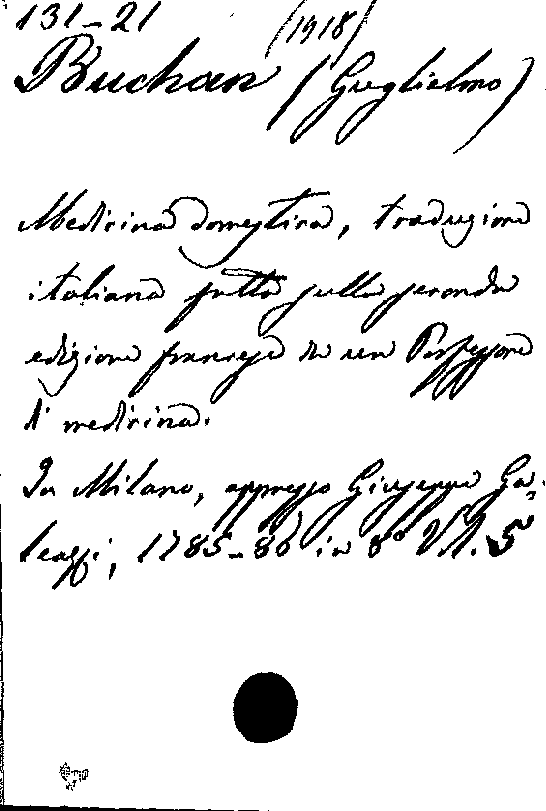 131-21 (1918)
Buchan (Guglielmo)
Medicina domestica, traduzione
italiana fatta sulla seconda
edizione francese da un Professore
di medicina.
In Milano, appresso Giuseppe Ga-
leazzi, 1785-86 in 8° V.